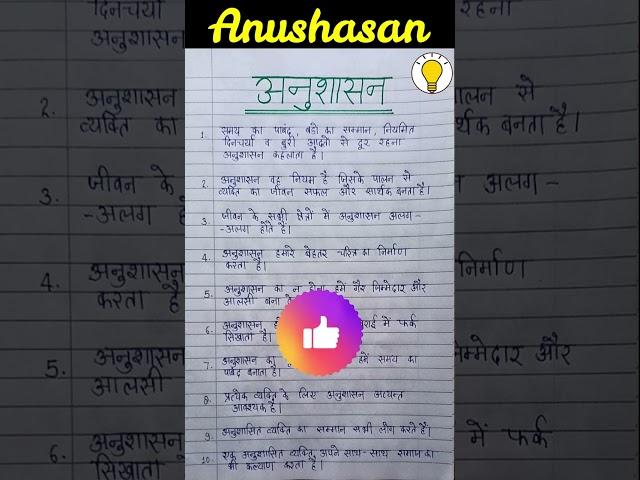 Anushasan
अनुशासन
1. समय का पाबंद, बडो का सम्मान, नियमित
दिनचर्या व बुरी आदतो से दूर रहना
अनुशासन कहलाता है।
2. अनुशासन वह नियम है जिसके पालन से
व्यक्ति का जीवन सफल और सार्थक बनता है।
3. जीवन के सभी क्षेत्रो में अनुशासन अलग-
-अलग होते है।
4. अनुशासन हमारे बेहतर चरित्र का निर्माण
करता है।
5. अनुशासन का न होना, हमे गैर जिम्मेदार और
आलसी बना
6. अनुशासन में फर्क
सिखाता है।
7. अनुशासन का हमें समय का
पाबंद बनाता है।
8. प्रत्येक व्यक्ति के लिए अनुशासन अत्यन्त
आवश्यक है।
9. अनुशासित व्यक्ति का सम्मान सभी लोग करते है।
10. एक अनुशासित व्यक्ति, अपने साथ-साथ समाज का
भी कल्याण करता है।